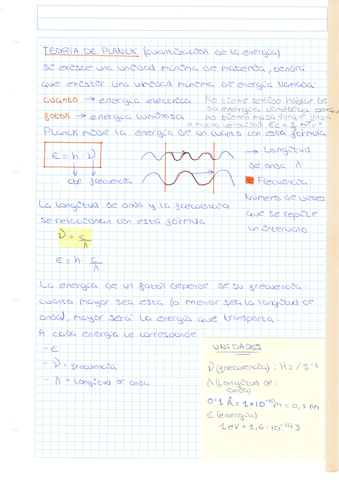 TEORÍA DE PLANCK (cuantización de la energía)
Si existe una unidad mínima de materia, tendrá
que existir una unidad mínima de energía llamada
cuanto → energía eléctrica
No tiene sentido hablar de
su energía cinética porque
fotón → energía luminosa
no tienen masa aunque
a mucha velocidad Ec =
Planck mide la energía de un cuanto con esta fórmula
E = h · ν
cte frecuencia
Longitud
de onda λ
Frecuencia
Número de veces
que se repite
un intervalo
La longitud de onda y la frecuencia
se relacionan con esta fórmula
ν = c/λ
E = h · c/λ
La energía de un fotón depende de su frecuencia
cuanto mayor sea esta (o menor sea la longitud de
onda), mayor será la energía que transporta.
A cada energía le corresponde
- E
- ν = frecuencia
- λ = longitud de onda
UNIDADES
ν (frecuencia): Hz / s⁻¹
λ (longitud de
onda)
0'1 Å = 1x10⁻¹⁰ m = 0,1 nm
E (energía)
1eV = 1,6·10⁻¹⁹ J